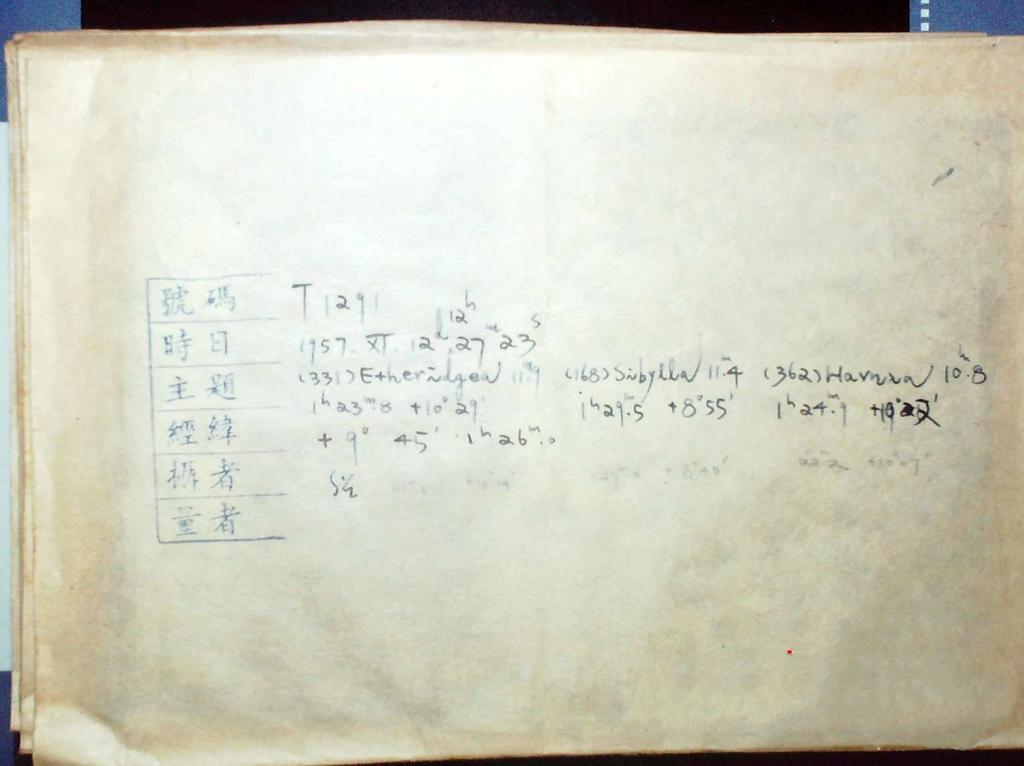 號碼 T 1291
12ʰ
時日 1957. XI. 12ᵈ 27ᵐ 23ˢ
主題 (331) Etheridgea 11ᵐ.9 (168) Sibylla 11ᵐ.4 (362) Havnia 10ᵐ.8
1ʰ 23ᵐ.8 +10° 29′ 1ʰ 29ᵐ.5 +8° 55′ 1ʰ 24ᵐ.9
經緯 + 9° 45′ 1ʰ 26ᵐ.0
22.2 +10° 07′
攝者
量者